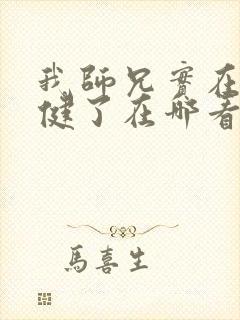 我師兄實在
健了在哪看
馬喜生